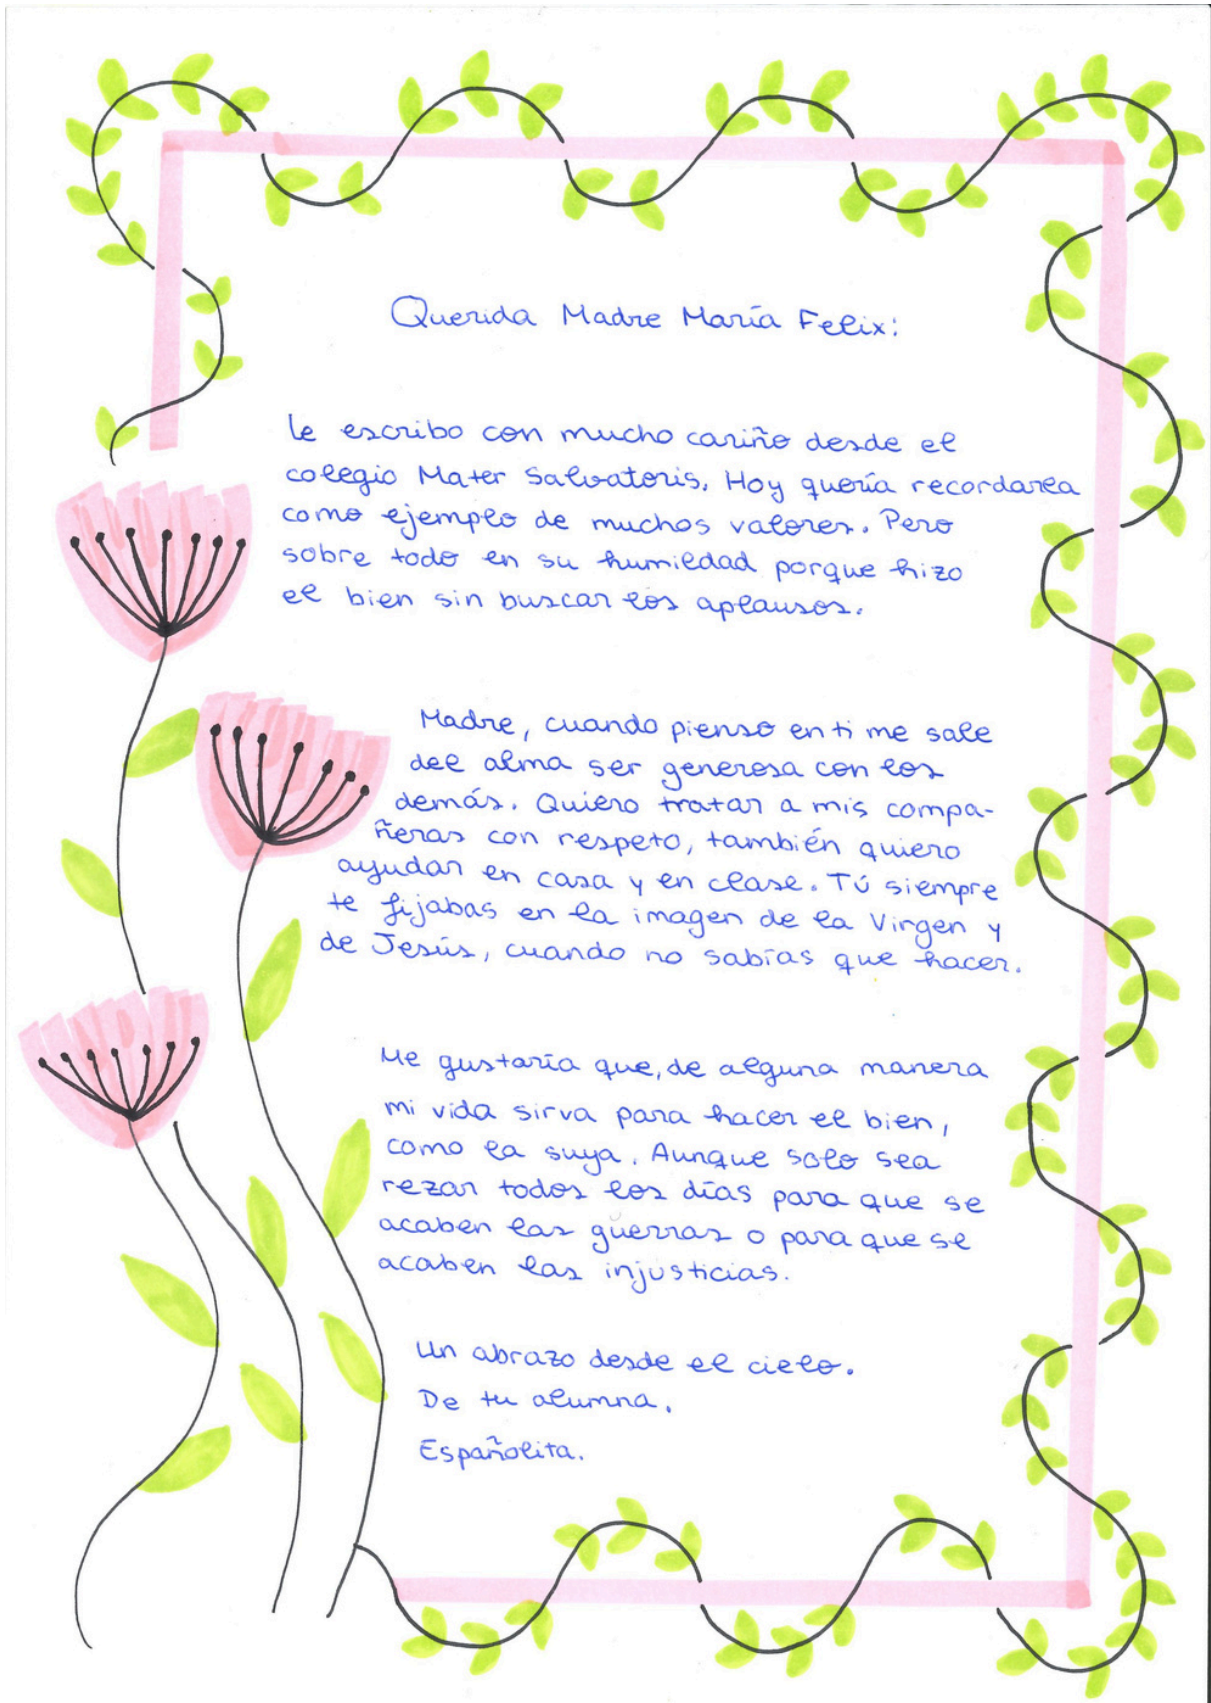 Querida Madre María Felix:
le escribo con mucho cariño desde el
colegio Mater Salvatoris. Hoy quería recordarla
como ejemplo de muchos valores. Pero
sobre todo en su humildad porque hizo
el bien sin buscar los aplausos.
Madre, cuando pienso en ti me sale
del alma ser generosa con los
demás. Quiero tratar a mis compa-
ñeras con respeto, también quiero
ayudar en casa y en clase. Tú siempre
te fijabas en la imagen de la Virgen y
de Jesús, cuando no sabías que hacer.
Me gustaría que, de alguna manera
mi vida sirva para hacer el bien,
como la suya. Aunque solo sea
rezar todos los días para que se
acaben las guerras o para que se
acaben las injusticias.
Un abrazo desde el cielo.
De tu alumna.
Españolita.